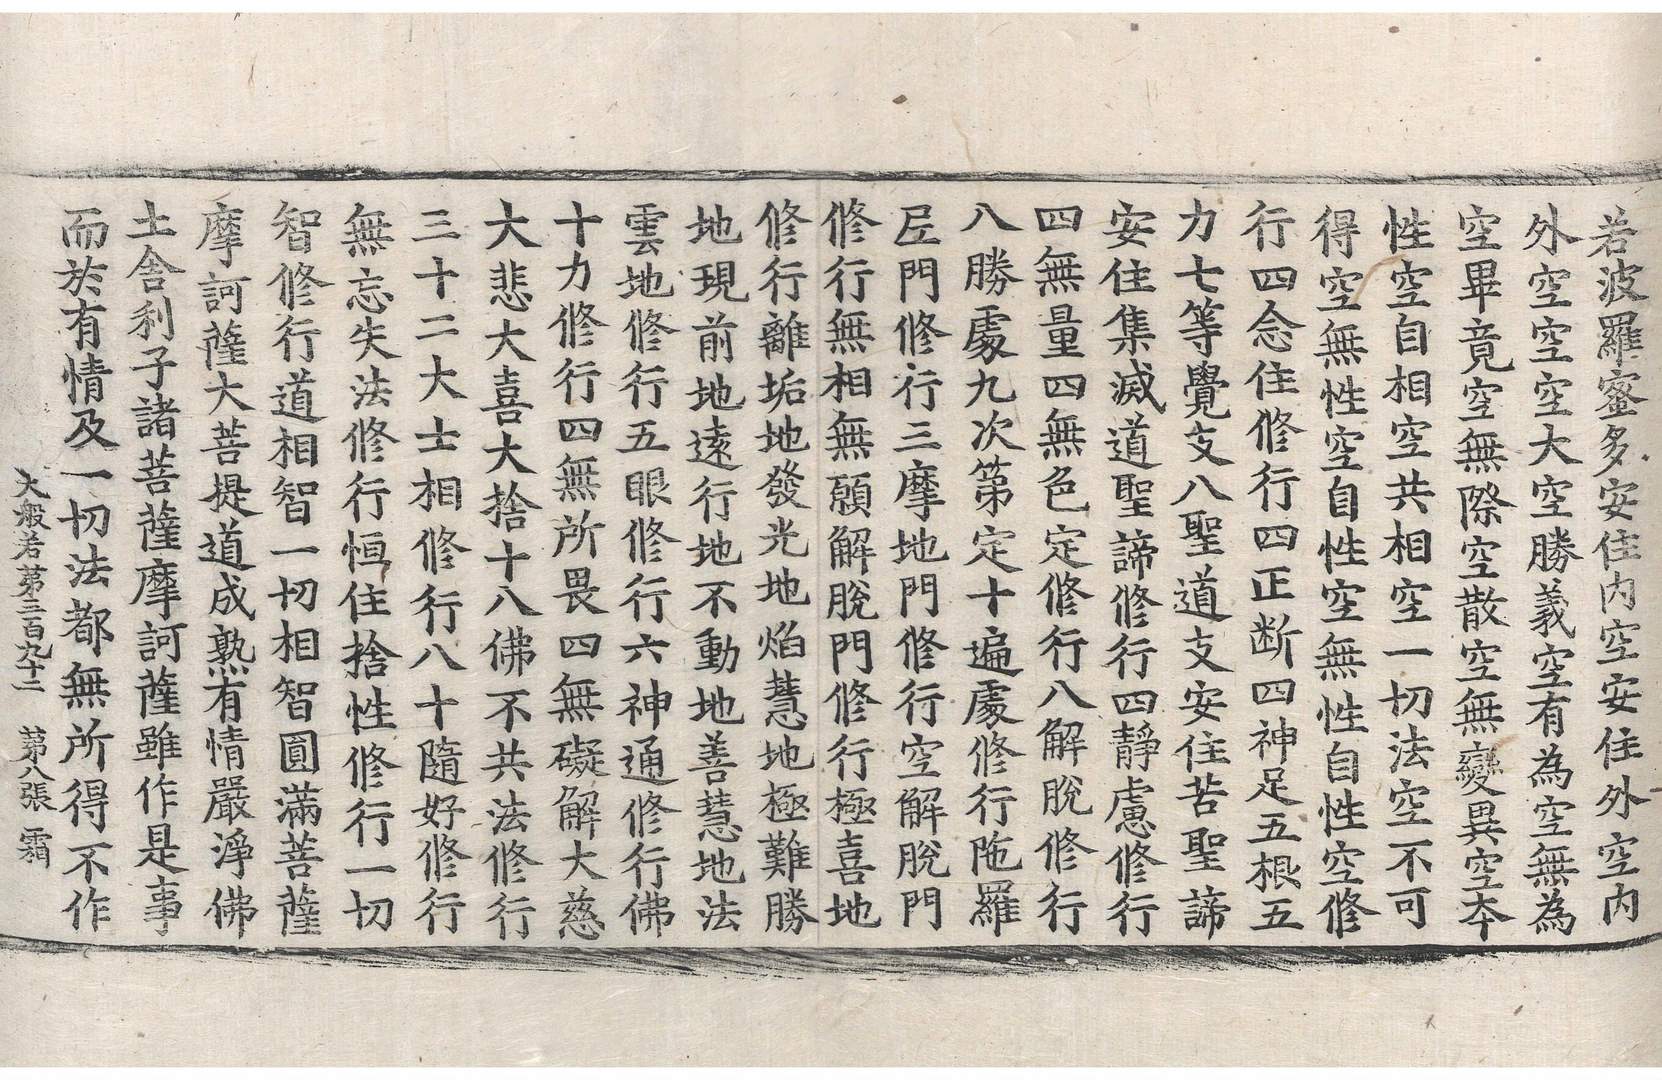 若波羅蜜多安住内空安住外空内
外空空空大空勝義空有為空無為
空畢竟空無際空散空無變異空本
性空自相空共相空一切法空不可
得空無性空自性空無性自性空修
行四念住修行四正断四神足五根五
力七等覺支八聖道支安住苦聖諦
安住集滅道聖諦修行四靜慮修行
四無量四無色定修行八解脫修行
八勝處九次第定十遍處修行陁羅
尼門修行三摩地門修行空解脫門
修行無相無願解脫門修行極喜地
修行離垢地發光地焰慧地極難勝
地現前地遠行地不動地善慧地法
雲地修行五眼修行六神通修行佛
十力修行四無所畏四無礙解大慈
大悲大喜大捨十八佛不共法修行
三十二大士相修行八十隨好修行
無忘失法修行恒住捨性修行一切
智修行道相智一切相智圓滿菩薩
摩訶薩大菩提道成熟有情嚴淨佛
土舍利子諸菩薩摩訶薩雖作是事
而於有情及一切法都無所得不作
大般若第三百九十二　第八張　霜